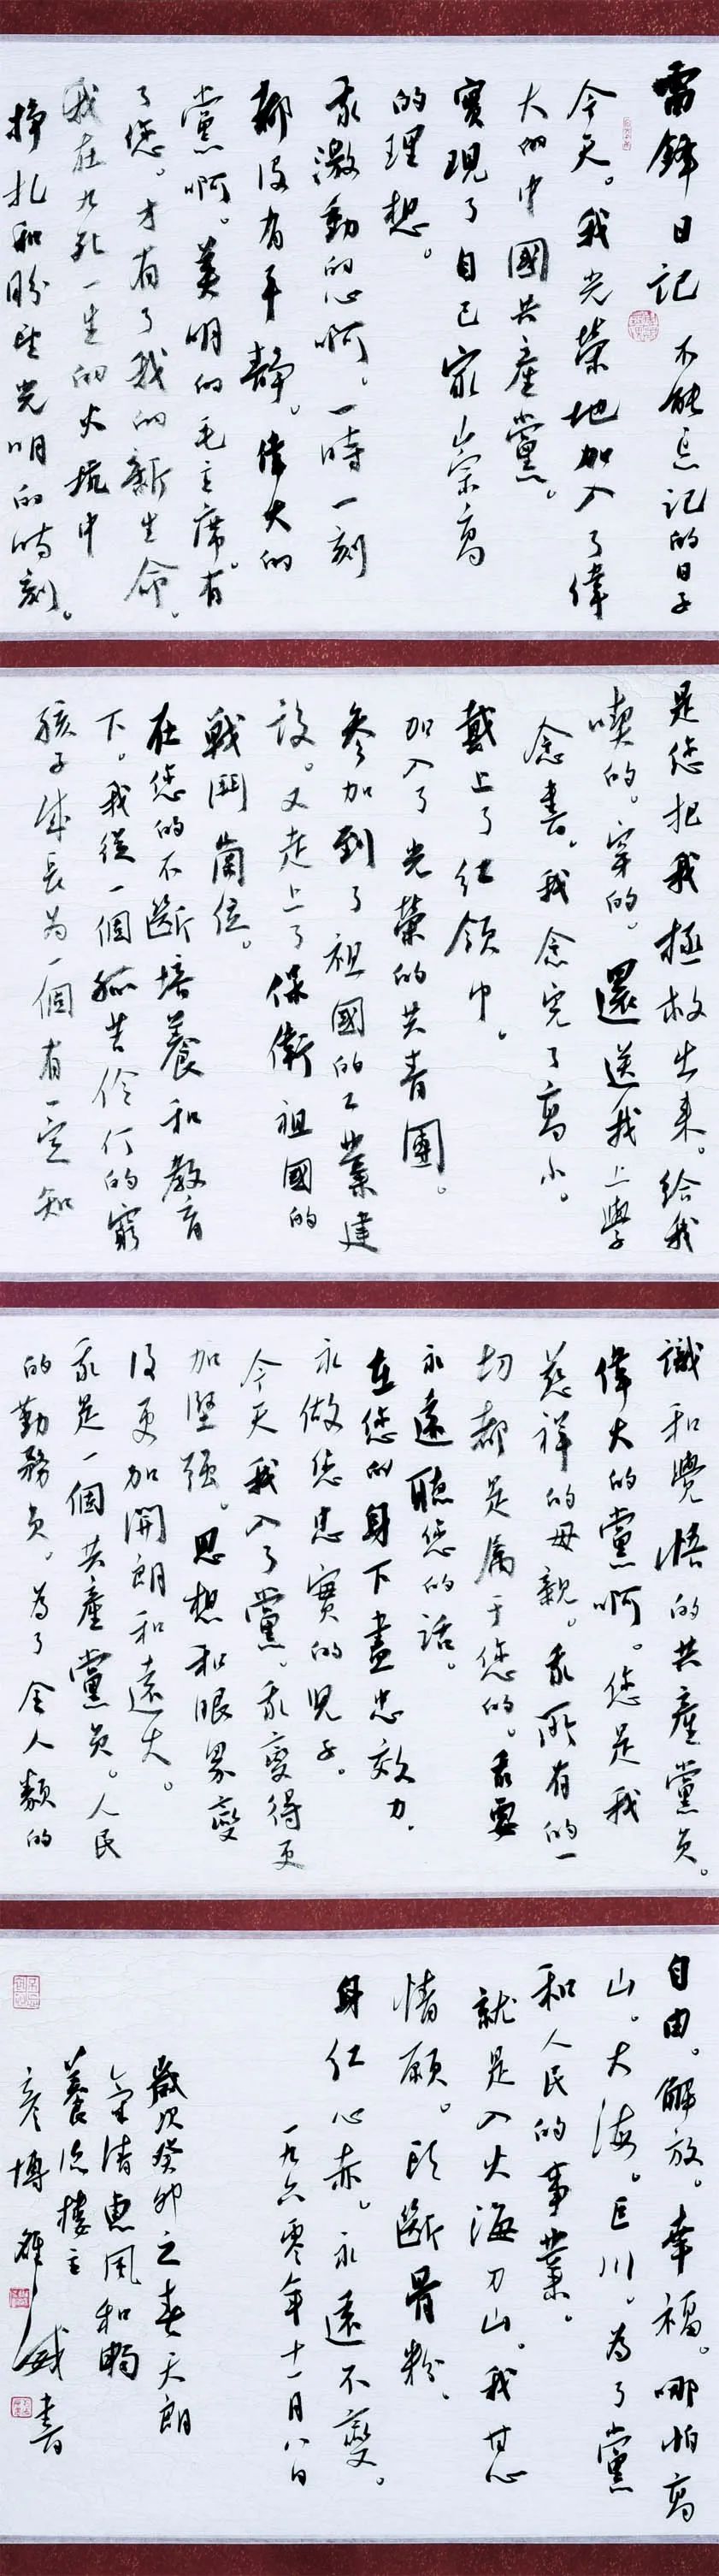 雷鋒日記 不能忘記的日子
今天。我光榮地加入了偉
大的中國共產黨。
實現了自己最崇高
的理想。
我激動的心啊。一時一刻
都沒有平靜。偉大的
黨啊。英明的毛主席。有
了您。才有了我的新生命。
我在九死一生的火坑中
掙扎和盼望光明的時刻。
是您把我拯救出來。給我
喫的。穿的。還送我上學
念書。我念完了高小。
戴上了紅領巾。
加入了光榮的共青團。
參加到了祖國的工業建
設。又走上了保衛祖國的
戰鬥崗位。
在您的不斷培養和教育
下。我從一個孤苦伶仃的窮
孩子成長為一個有一定知
識和覺悟的共產黨員。
偉大的黨啊。您是我
慈祥的母親。我所有的一
切都是屬于您的。我要
永遠聽您的話。
在您的身下盡忠效力。
永做您忠實的兒子。
今天我入了黨。我變得更
加堅强。思想和眼界變
得更加開朗和遠大。
我是一個共產黨員。人民
的勤務員。為了全人類的
自由。解放。幸福。哪怕高
山。大海。巨川。為了黨
和人民的事業。
就是入火海刀山。我甘心
情願。頭斷骨粉。
身紅心赤。永遠不變。
一九六零年十一月八日
歲次癸卯之春天朗
氣清惠風和暢
養 樓主
彥博 書